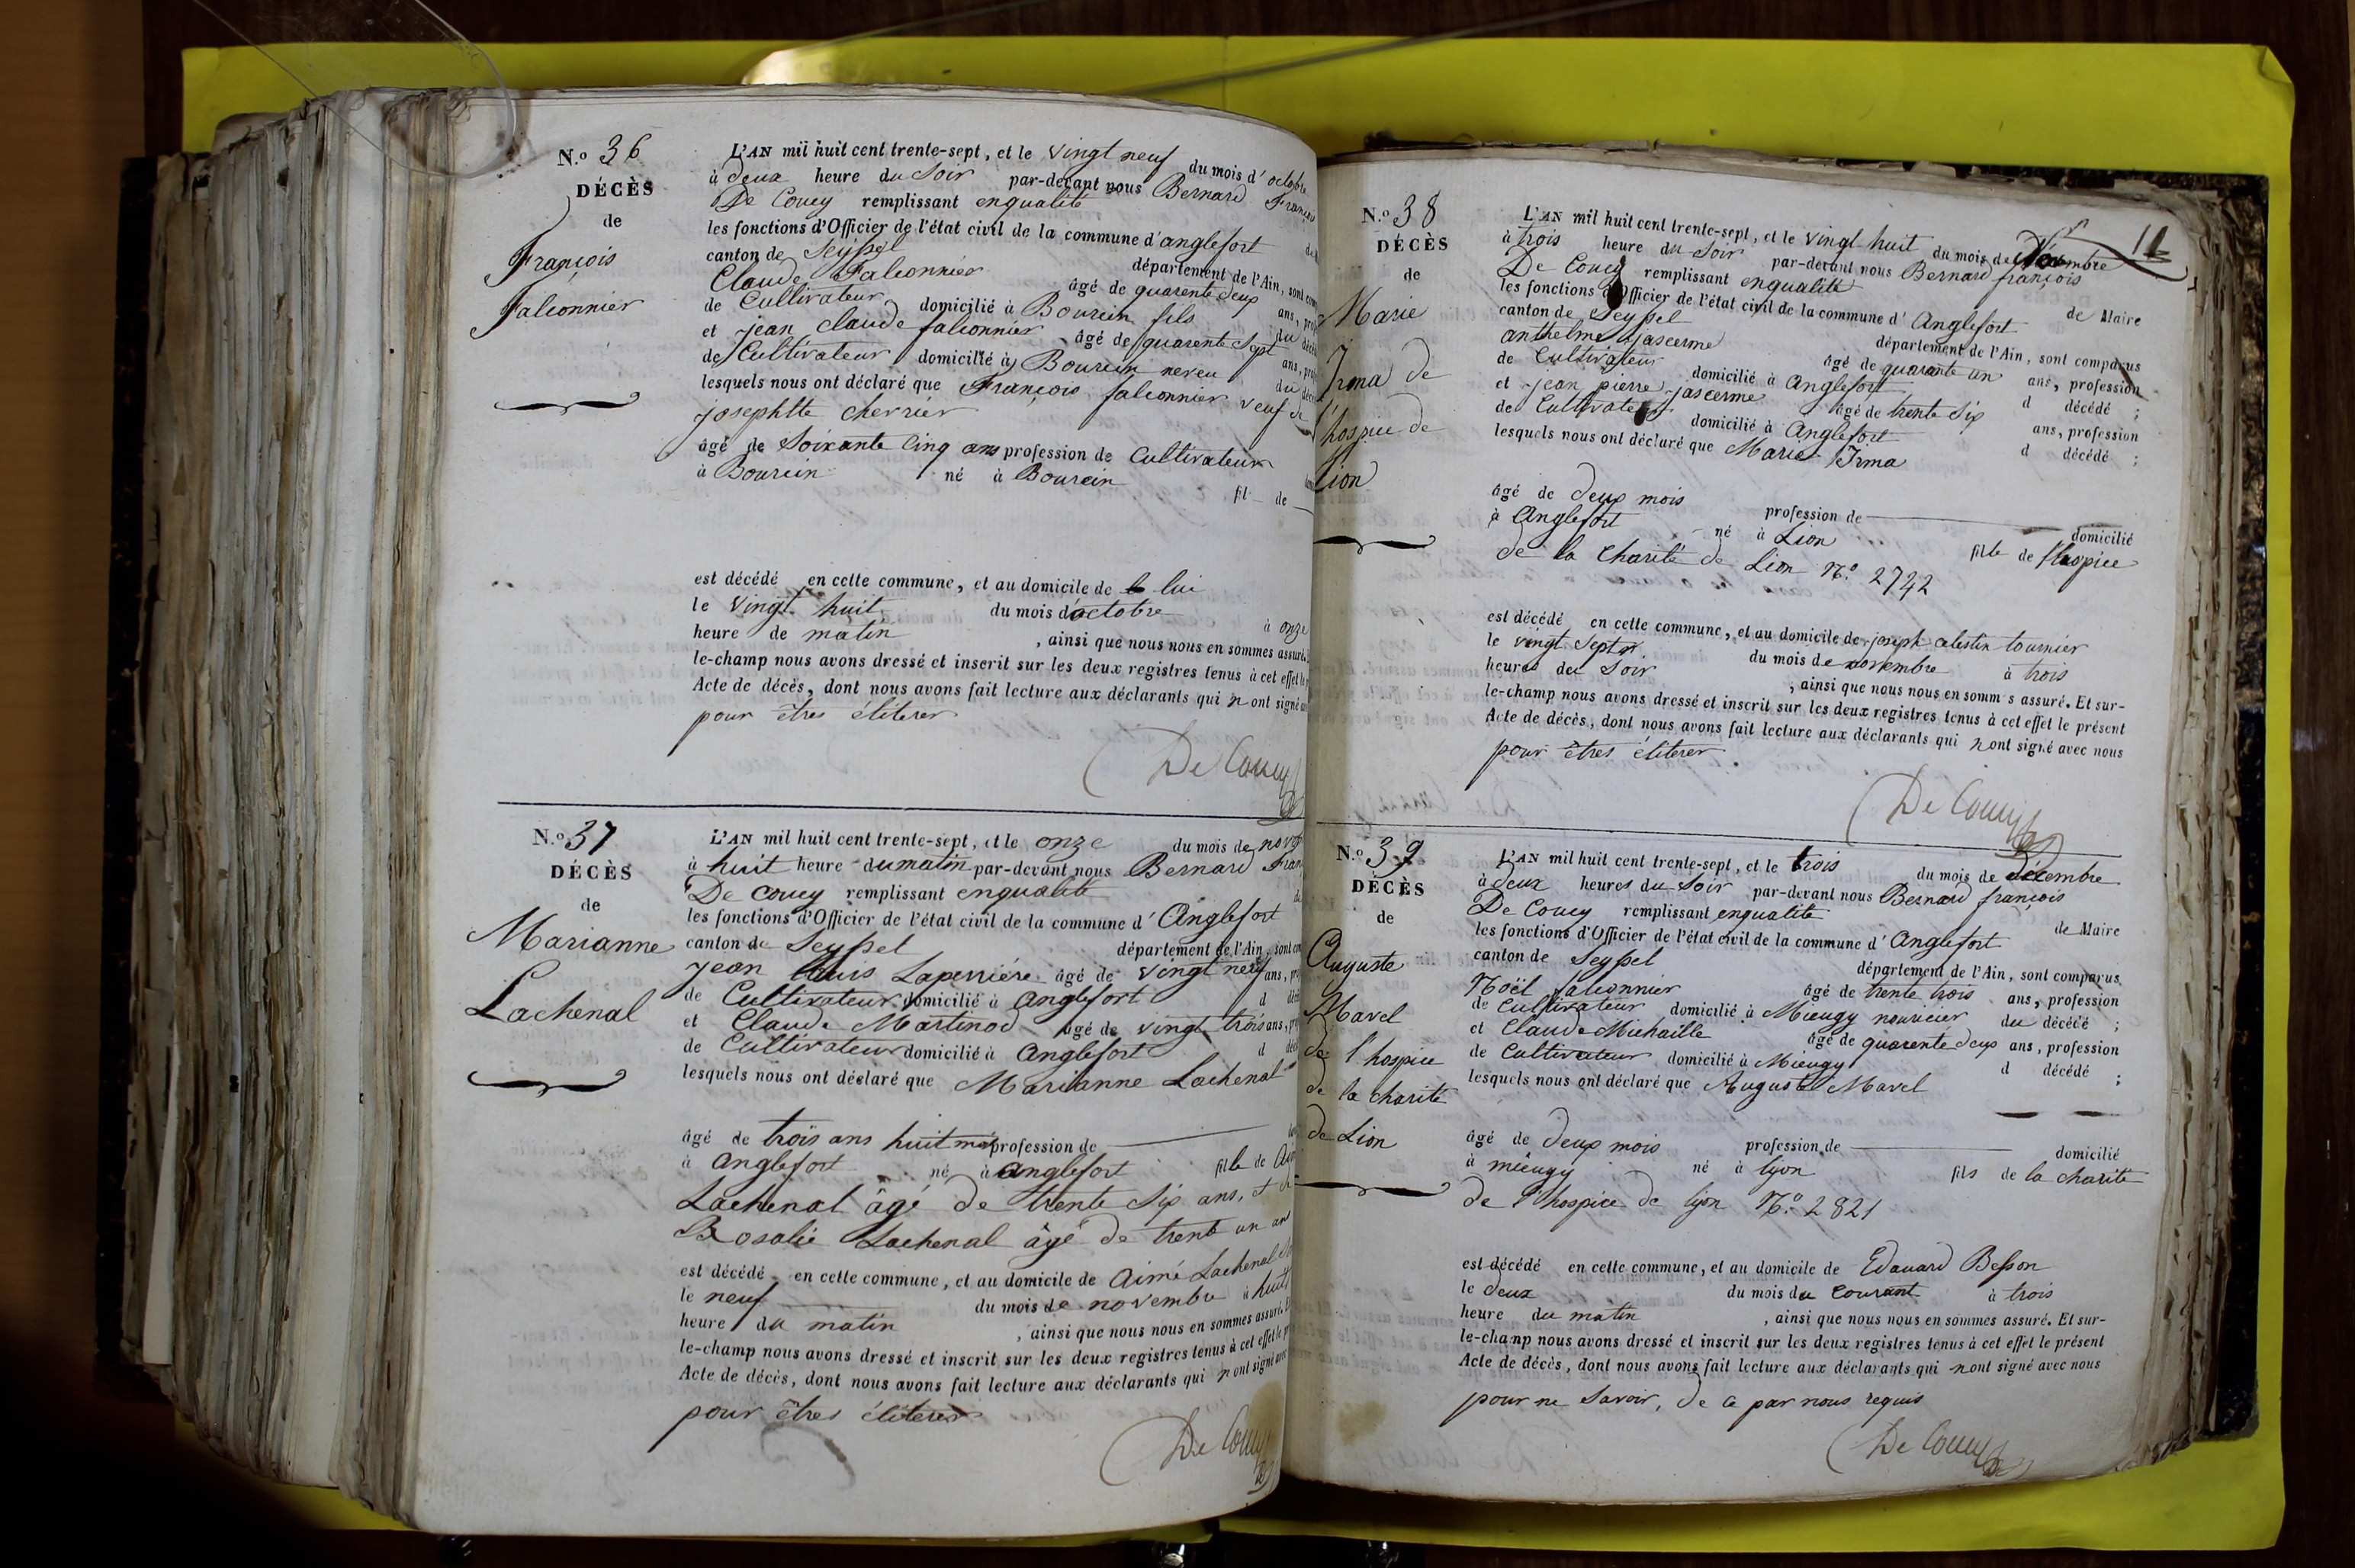 N.o 36
DÉCÈS
de
François
Falconnier
L'AN mil huit cent trente-sept, et le vingt neuf du mois d' octobre
à deux heure du Soir par-devant nous Bernard François
De Coucy remplissant enqualité
les fonctions d'Officier de l'état civil de la commune d'anglefort
canton de Seyssel département de l'Ain, sont
Claude Falconnier âgé de quarente deux ans,
de Cultivateur domicilié à Bourcin fils du
et jean claude falconnier âgé de quarente Sept ans,
de Cultivateur domicilié à Bourcin neveu du
lesquels nous ont déclaré que François falconnier veuf de
josephtte cherrier
âgé de Soixante Cinq ans profession de Cultivateur
à Bourcin né à Bourcin fil de
est décédé en cette commune, et au domicile de lui
le vingt huit du mois d'octobre à onze
heure de matin , ainsi que nous nous en sommes assuré.
le-champ nous avons dressé et inscrit sur les deux registres tenus à cet effet le
Acte de décès, dont nous avons fait lecture aux déclarants qui n ont signé
pour êtres éliterer
De Coucy
N.o 37
DÉCÈS
de
Marianne
Lachenal
L'AN mil huit cent trente-sept, et le onze du mois de
à huit heure du matin par-devant nous Bernard
De coucy remplissant enqualité
les fonctions d'Officier de l'état civil de la commune d' Anglefort
canton de Seyssel département de l'Ain, sont
jean louis Laperrière âgé de vingt neuf ans,
de Cultivateur domicilié à anglefort d
et Claude Martinod âgé de vingt trois ans,
de Cultivateur domicilié à anglefort d
lesquels nous ont déclaré que Marianne Lachenal
âgé de trois ans huit mois profession de
à anglefort né à anglefort fille de
Lachenal âgé de trente Six ans, et
Rosalie Lachenal âgé de trent un ans
est décédé en cette commune, et au domicile de aimé Lachenal
le neuf du mois de novembre à huit
heure du matin , ainsi que nous nous en sommes assuré.
le-champ nous avons dressé et inscrit sur les deux registres tenus à cet effet le
Acte de décès, dont nous avons fait lecture aux déclarants qui n ont signé avec
pour êtres éliterer
De Coucy
11
N.o 38
DÉCÈS
de
Marie
Irma de
l'hospice de
Lion
L'AN mil huit cent trente-sept, et le vingt huit du mois de
à trois heure du Soir par-devant nous Bernard françois
De Coucy remplissant enqualité de Maire
les fonctions d'Officier de l'état civil de la commune d' Anglefort
canton de Seyssel département de l'Ain, sont comparus
anthelme jascerme âgé de quarante un ans, profession
de Cultivateur domicilié à Anglefort d décédé ;
et jean pierre jascerme âgé de trente Six ans, profession
de Cultivateur domicilié à Anglefort d décédé ;
lesquels nous ont déclaré que Marie Irma
âgé de deux mois profession de domicilié
à Anglefort né à Lion fille de l'hospice
de la Charité de Lion N.o 2742
est décédé en cette commune, et au domicile de joseph celestin tournier
le vingt Sept du mois de novembre à trois
heures du Soir , ainsi que nous nous en somm s assuré. Et sur-
le-champ nous avons dressé et inscrit sur les deux registres tenus à cet effet le présent
Acte de décès, dont nous avons fait lecture aux déclarants qui n ont signé avec nous
pour êtres éliterer
De Coucy
N.o 39
DÉCÈS
de
Auguste
Mavel
de l'hospice
de la charité
de Lion
L'AN mil huit cent trente-sept, et le trois du mois de décembre
à deux heures du Soir par-devant nous Bernard françois
De Coucy remplissant enqualité de Maire
les fonctions d'Officier de l'état civil de la commune d' Anglefort
canton de Seyssel département de l'Ain, sont comparus
Noël falconnier âgé de trente trois ans, profession
de Cultivateur domicilié à Mieugy nouricier du décédé ;
et Claude Michaille âgé de quarente deux ans, profession
de Cultivateur domicilié à Mieugy d décédé ;
lesquels nous ont déclaré que Auguste Mavel
âgé de deux mois profession de domicilié
à mieugy né à lyon fils de la charité
de l'hospice de lyon N.o 2821
est décédé en cette commune, et au domicile de Edouard Besson
le deux du mois du courant à trois
heure du matin , ainsi que nous nous en sommes assuré. Et sur-
le-champ nous avons dressé et inscrit sur les deux registres tenus à cet effet le présent
Acte de décès, dont nous avons fait lecture aux déclarants qui n ont signé avec nous
pour ne Savoir, de ce par nous requis
De Coucy